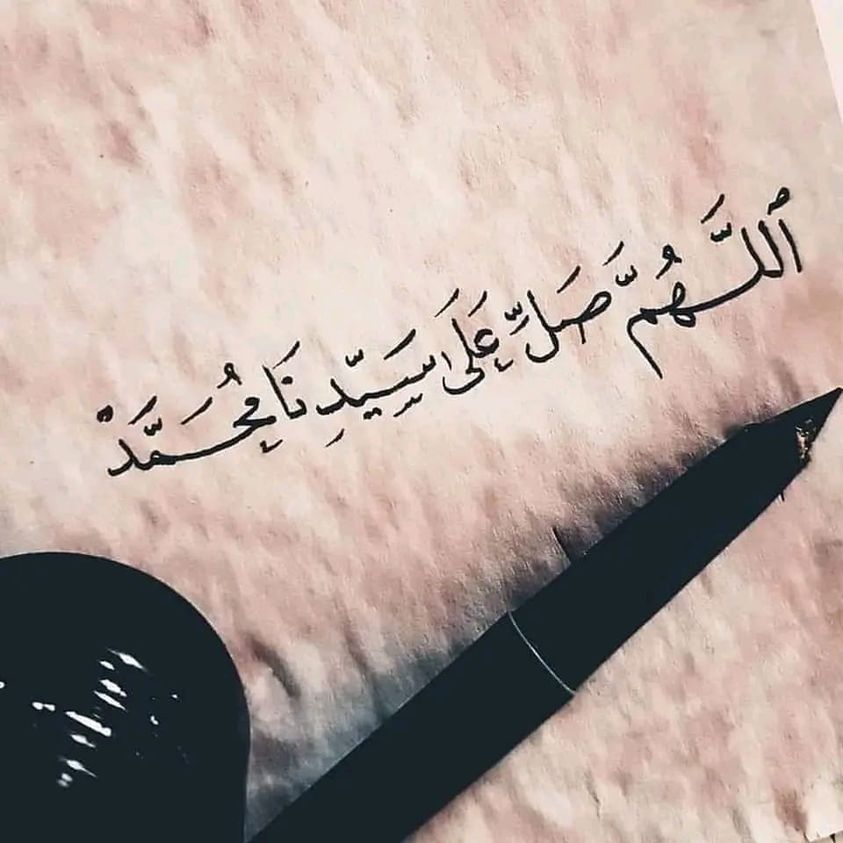 ٱللَّهُمَّ صَلِّ عَلَى سَيِّدِنَا مُحَمَّدْ